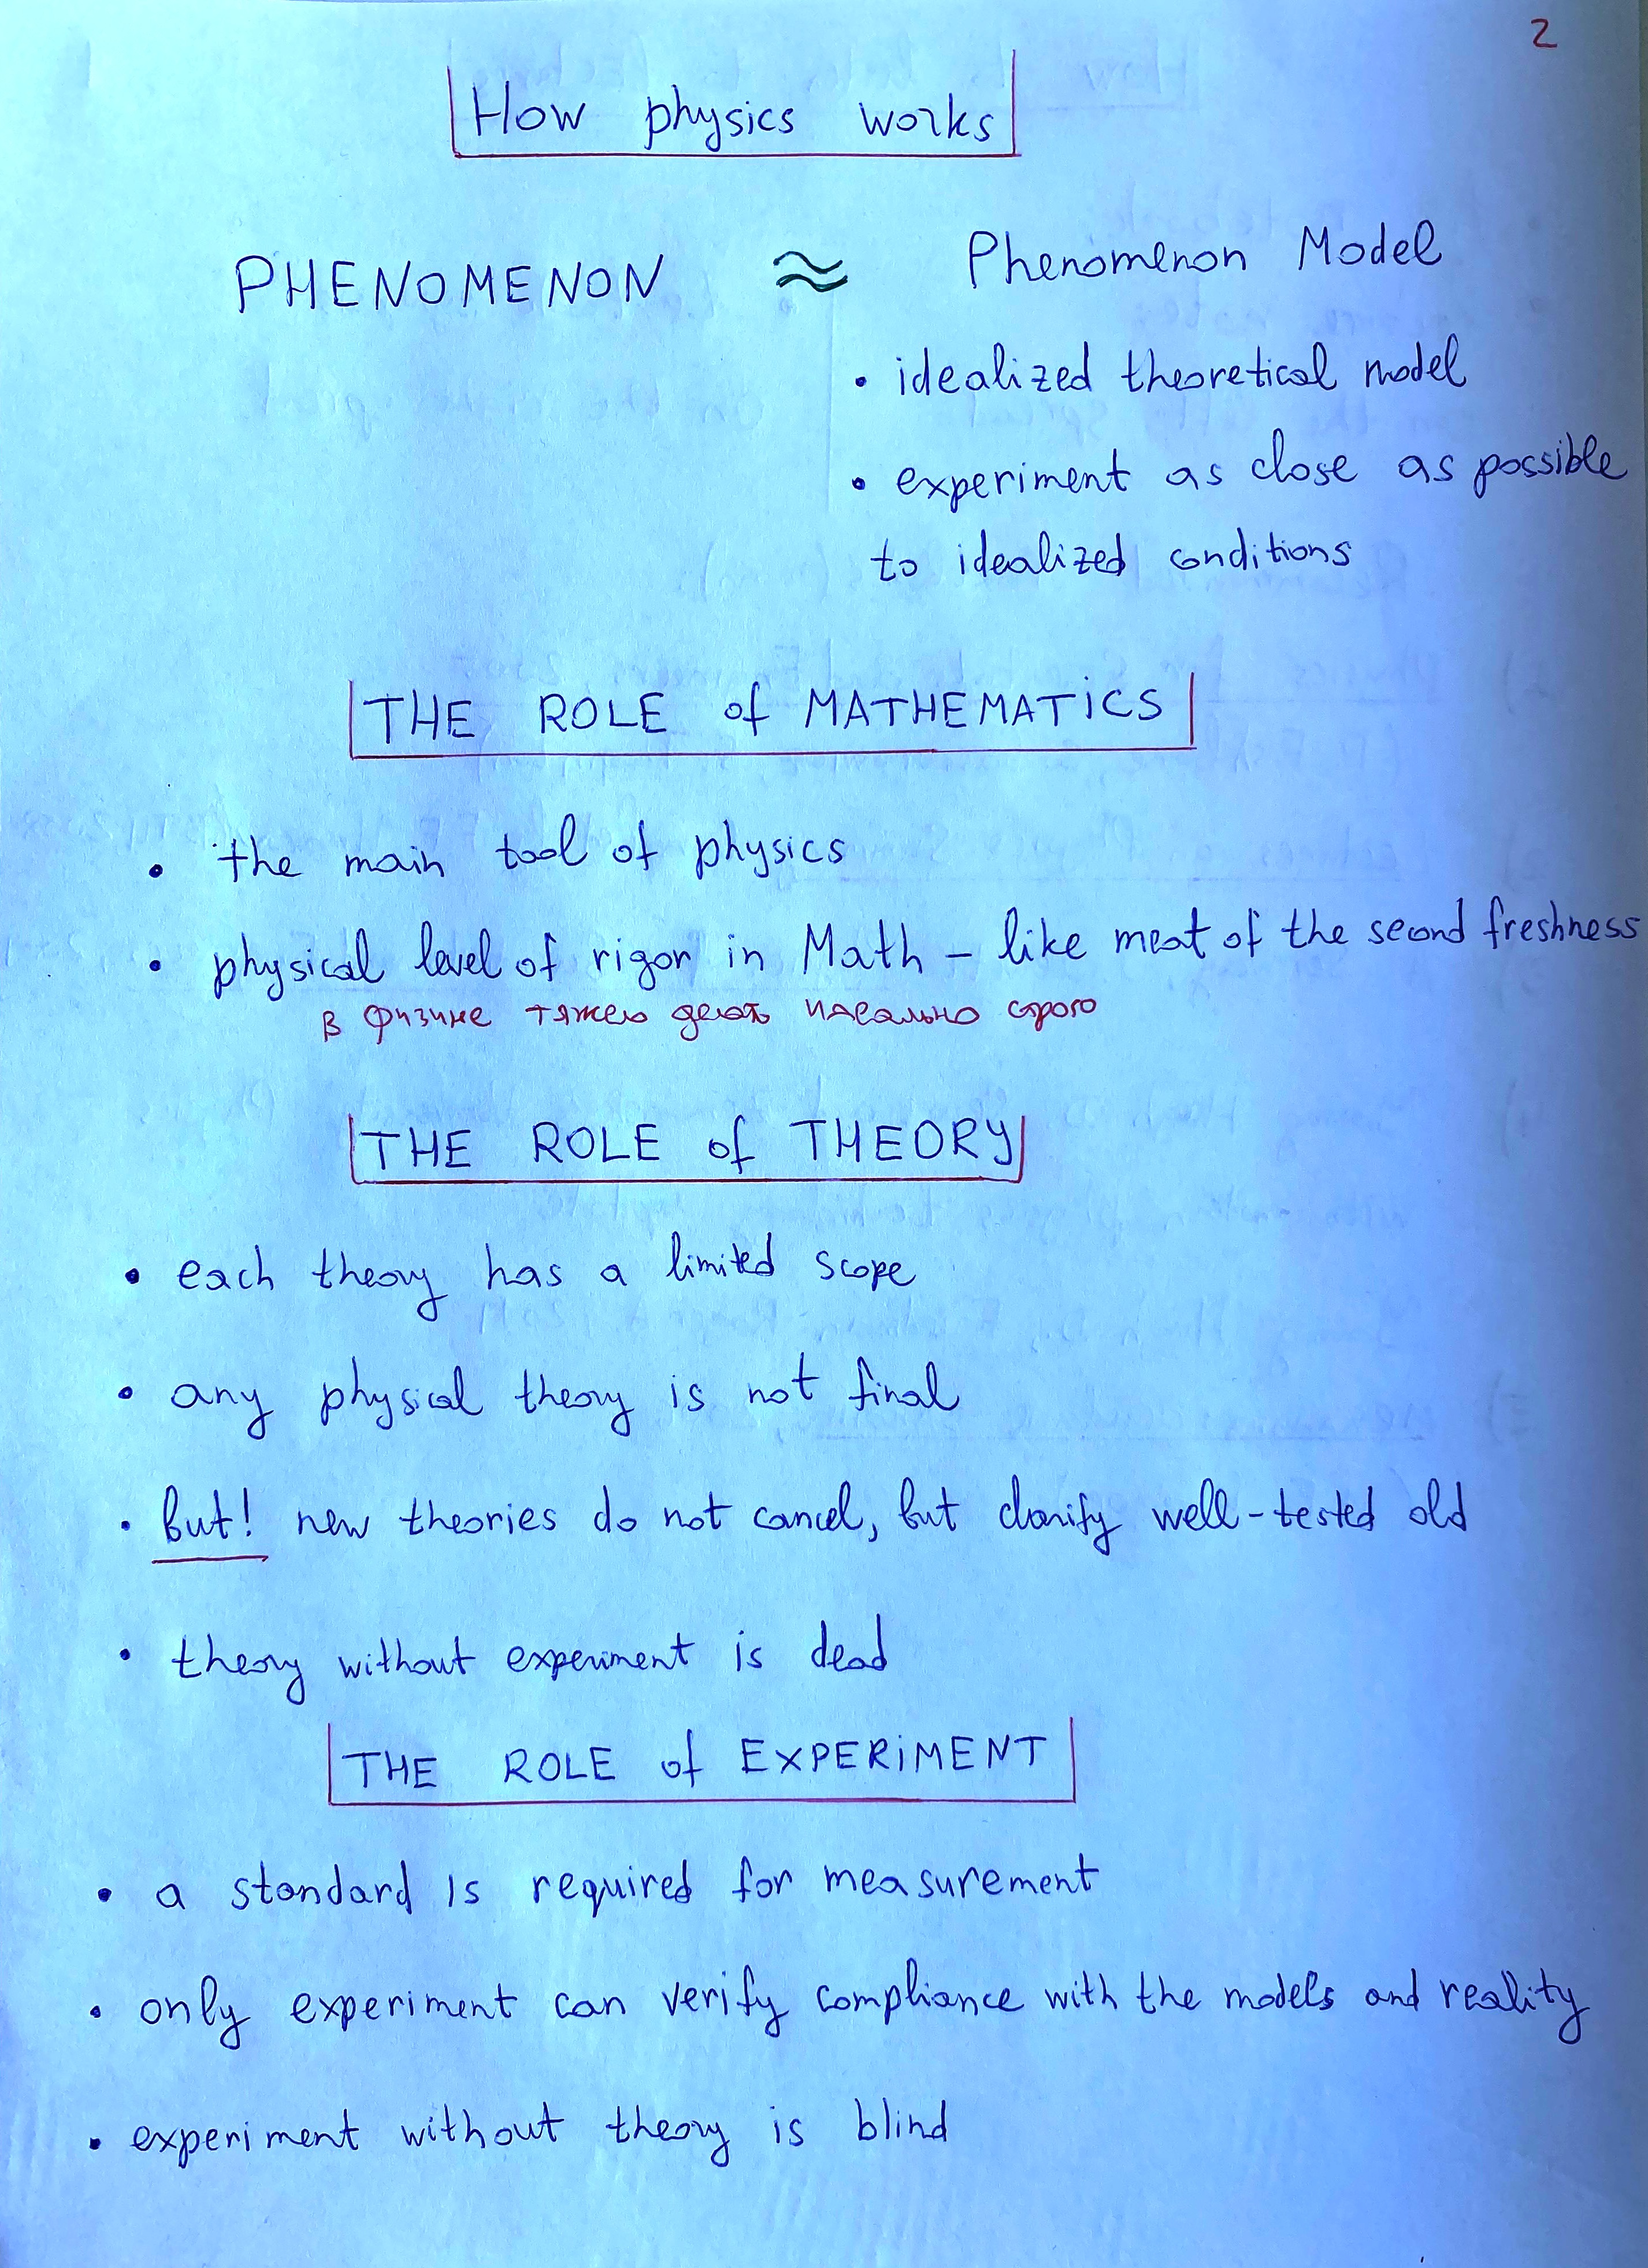 2
How physics works
PHENOMENON ≈ Phenomenon Model
• idealized theoretical model
• experiment as close as possible
to idealized conditions
THE ROLE of MATHEMATICS
• the main tool of physics
• physical level of rigor in Math – like meat of the second freshness
в физике тяжело делать идеально строго
THE ROLE of THEORY
• each theory has a limited scope
• any physical theory is not final
• but! new theories do not cancel, but clarify well-tested old
• theory without experiment is dead
THE ROLE of EXPERIMENT
• a standard is required for measurement
• only experiment can verify compliance with the models and reality
• experiment without theory is blind